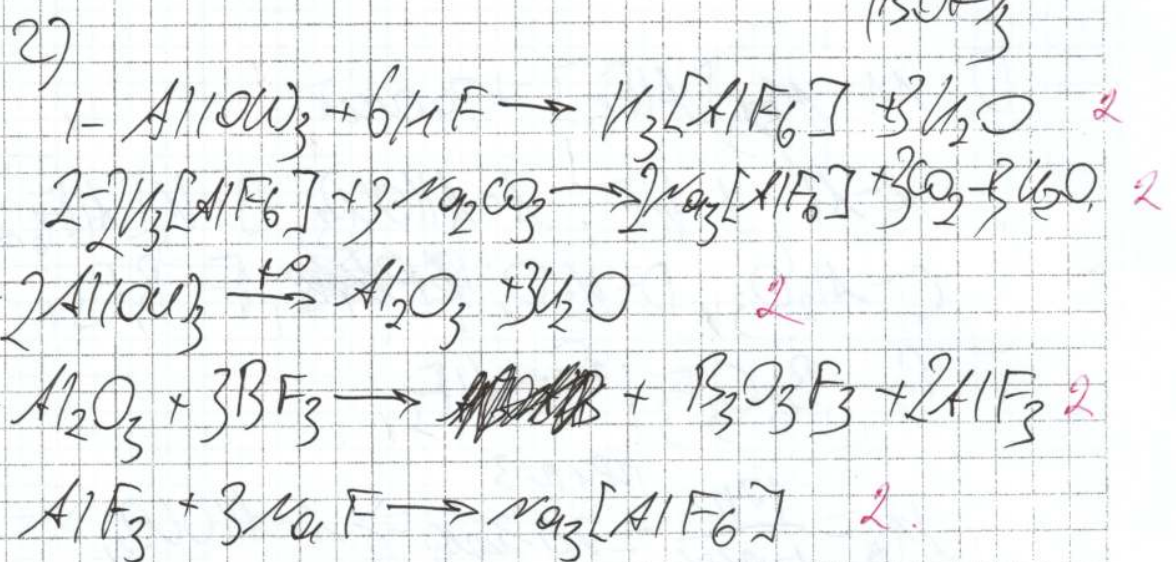 (BOF)3
2)
1- Al(OH)3 + 6HF → H3[AlF6] + 3H2O 2
2- 2H3[AlF6] + 3Na2CO3 → 2Na3[AlF6] + 3CO2 + 3H2O, 2
2Al(OH)3 t° → Al2O3 + 3H2O 2
Al2O3 + 3BF3 → + B3O3F3 + 2AlF3 2
AlF3 + 3NaF → Na3[AlF6] 2.